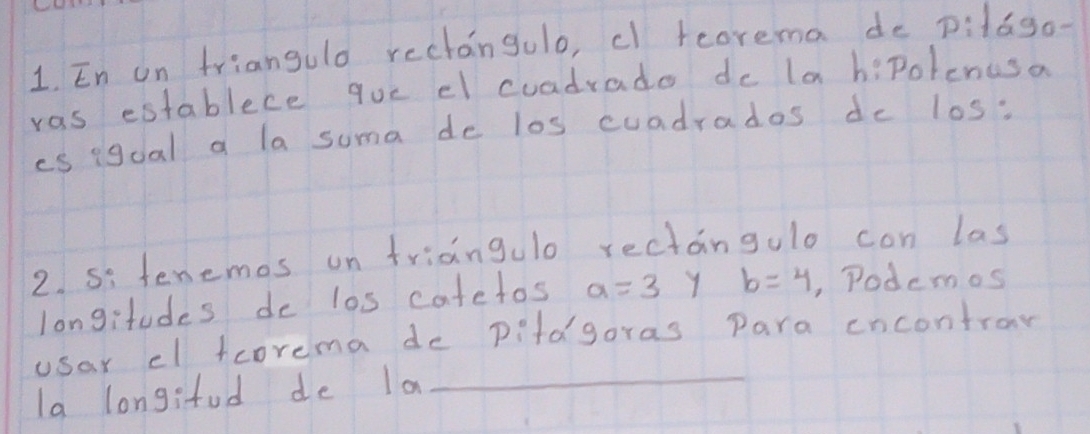 1. En un triangulo rectángulo, el teorema de Pitágo-
ras establece que el cuadrado de la hipotenusa
es igual a la suma de los cuadrados de los:
2. Si tenemos un triángulo rectángulo con las
longitudes de los catetos a=3 y b=4, Podemos
usar el teorema de Pitágoras Para encontrar
la longitud de la